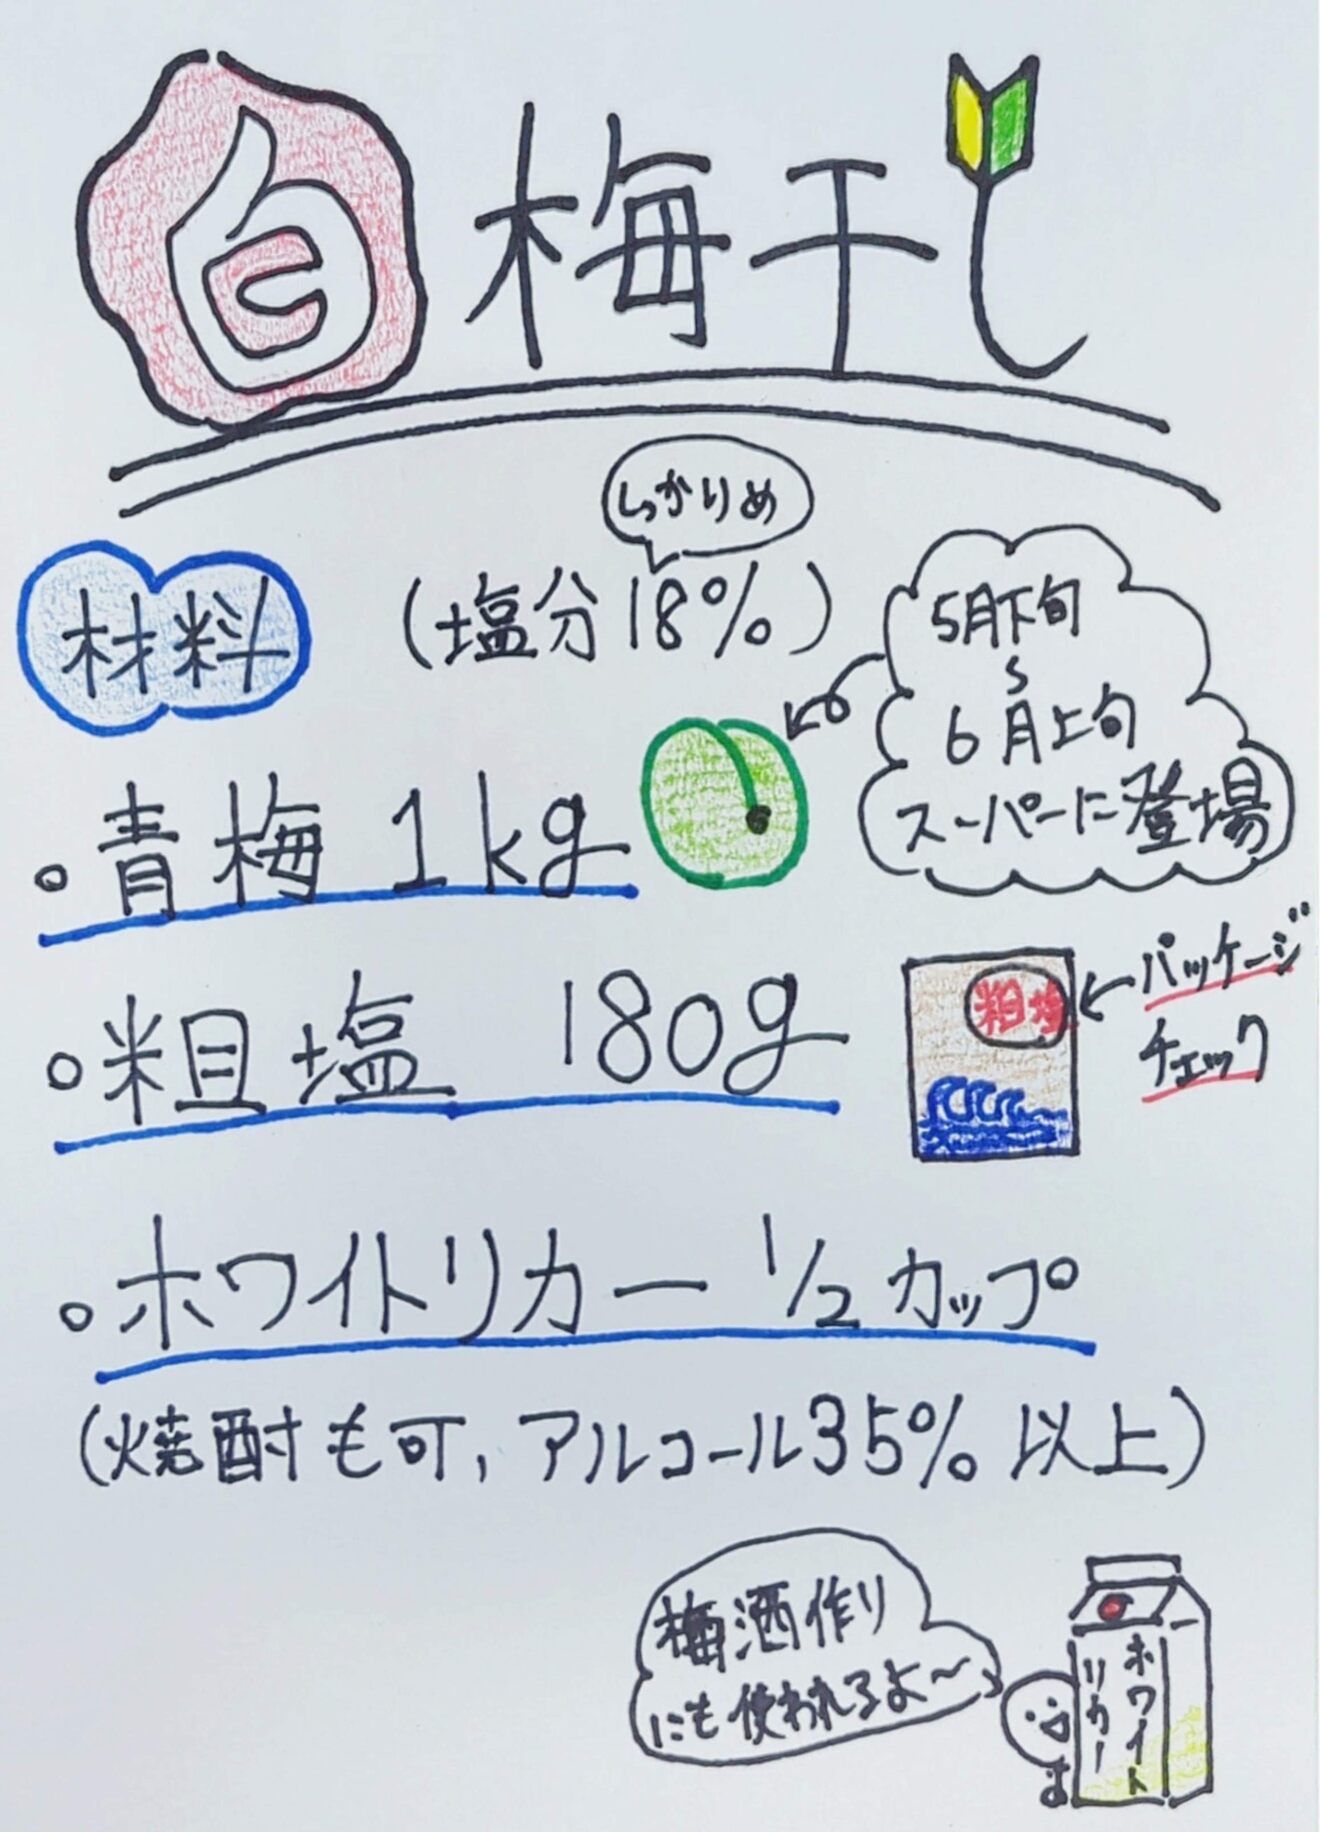 白梅干し
しっかりめ
材料
(塩分18%)
5月下旬
〜
6月上旬
スーパーに登場
・青梅 1kg
・粗塩 180g
粗塩
パッケージ
チェック
・ホワイトリカー 1/2カップ
(焼酎も可、アルコール35%以上)
梅酒作り
にも使われるよ〜
ホワイト
リカー